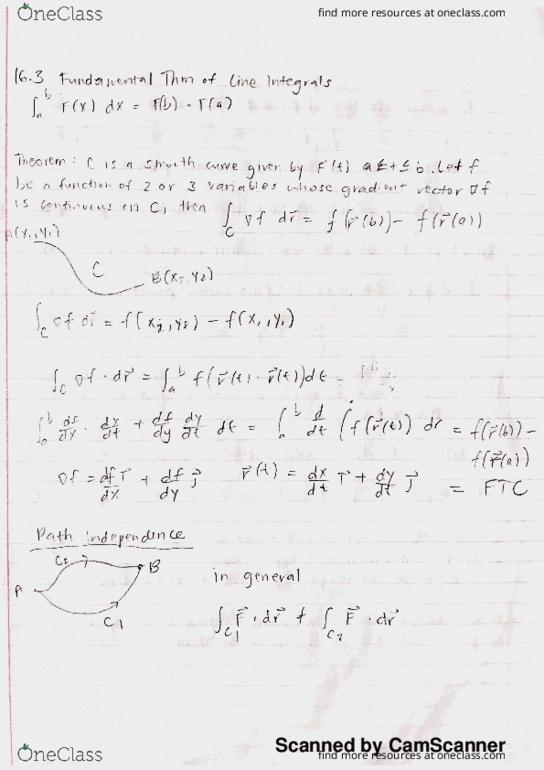 OneClass
find more resources at oneclass.com
16.3 Fundamental Thm of Line Integrals
∫ₐᵇ F(x) dx = F(b) - F(a)
Theorem: C is a smooth curve given by r(t) a≤t≤b. Let f
be a function of 2 or 3 variables whose gradient vector ∇f
is continuous on C, then ∫_C ∇f dr⃗ = f(r⃗(b)) - f(r⃗(a))
A(x₁,y₁)
C
B(x₂,y₂)
∫_C ∇f dr⃗ = f(x₂,y₂) - f(x₁,y₁)
∫_C ∇f · dr⃗ = ∫ₐᵇ f(r⃗(t) · r⃗(t))dt =
∫ₐᵇ df/dx · dx/dt + df/dy dy/dt dt = ∫ₐᵇ d/dt (f(r⃗(t)) dr = f(r⃗(b)) -
f(r⃗(a))
∇f = df/dx i⃗ + df/dy j⃗ r⃗(t) = dx/dt i⃗ + dy/dt j⃗ = FTC
Path independence
C₂
B
A
C₁
in general
∫_C₁ F⃗ · dr⃗ ≠ ∫_C₂ F⃗ · dr⃗
Scanned by CamScanner
OneClass
find more resources at oneclass.com